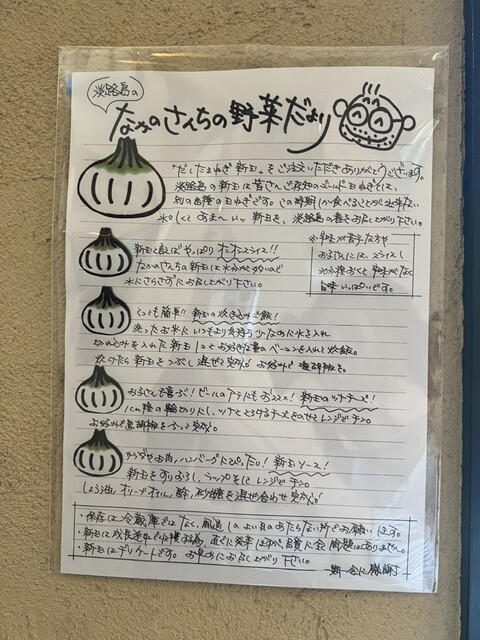 淡路島の
なかのさんちの野菜だより
『だしたまねぎ 新玉』をご注文いただきありがとうございます。
淡路島の新玉は皆さんご存知のゴールド玉ねぎとは、
別の品種の玉ねぎです。この時期しか食べることが出来ない
水々しくてあま〜いッ新玉を、淡路島の春をお召し上がり下さい。
新玉と言えばやっぱりオニオンスライス!!
なかのさんちの新玉は水分が多いので
水にさらさずにお召し上がり下さい。
※辛味が苦手な方や
お子さんには、スライスし
30分程おくと辛味がなく
旨味いっぱいです。
とっても簡単!! 新玉の炊き込みご飯!
洗ったお米にいつもより気持ち少なめに水を入れ
切れ込みを入れた新玉1コとお好きな量のベーコンを入れて炊飯。
炊けたら新玉をつぶし混ぜて完成。お好みで塩胡椒を。
お子さんも喜ぶ!ビールのアテにもおススメ! 新玉のツナチーズ!
1cm程の輪切りにし、ツナととろけるチーズをのせてレンジでチン。
お好みで黒胡椒をふって完成。
サラダやお肉、ハンバーグにぴったり! 新玉ソース!
新玉をすりおろし、ラップをしてレンジでチン。
しょう油、オリーブオイル、酢、砂糖を混ぜ合わせ完成!
・保存は冷蔵庫ではなく、風通しのよい日のあたらない所でお願いします。
・新玉は成長途中で収穫する為、直ぐに発芽しますが、品質に全く問題はありません。
・新玉はデリケートです。お早めにお召し上がり下さい。
一期一会に感謝!